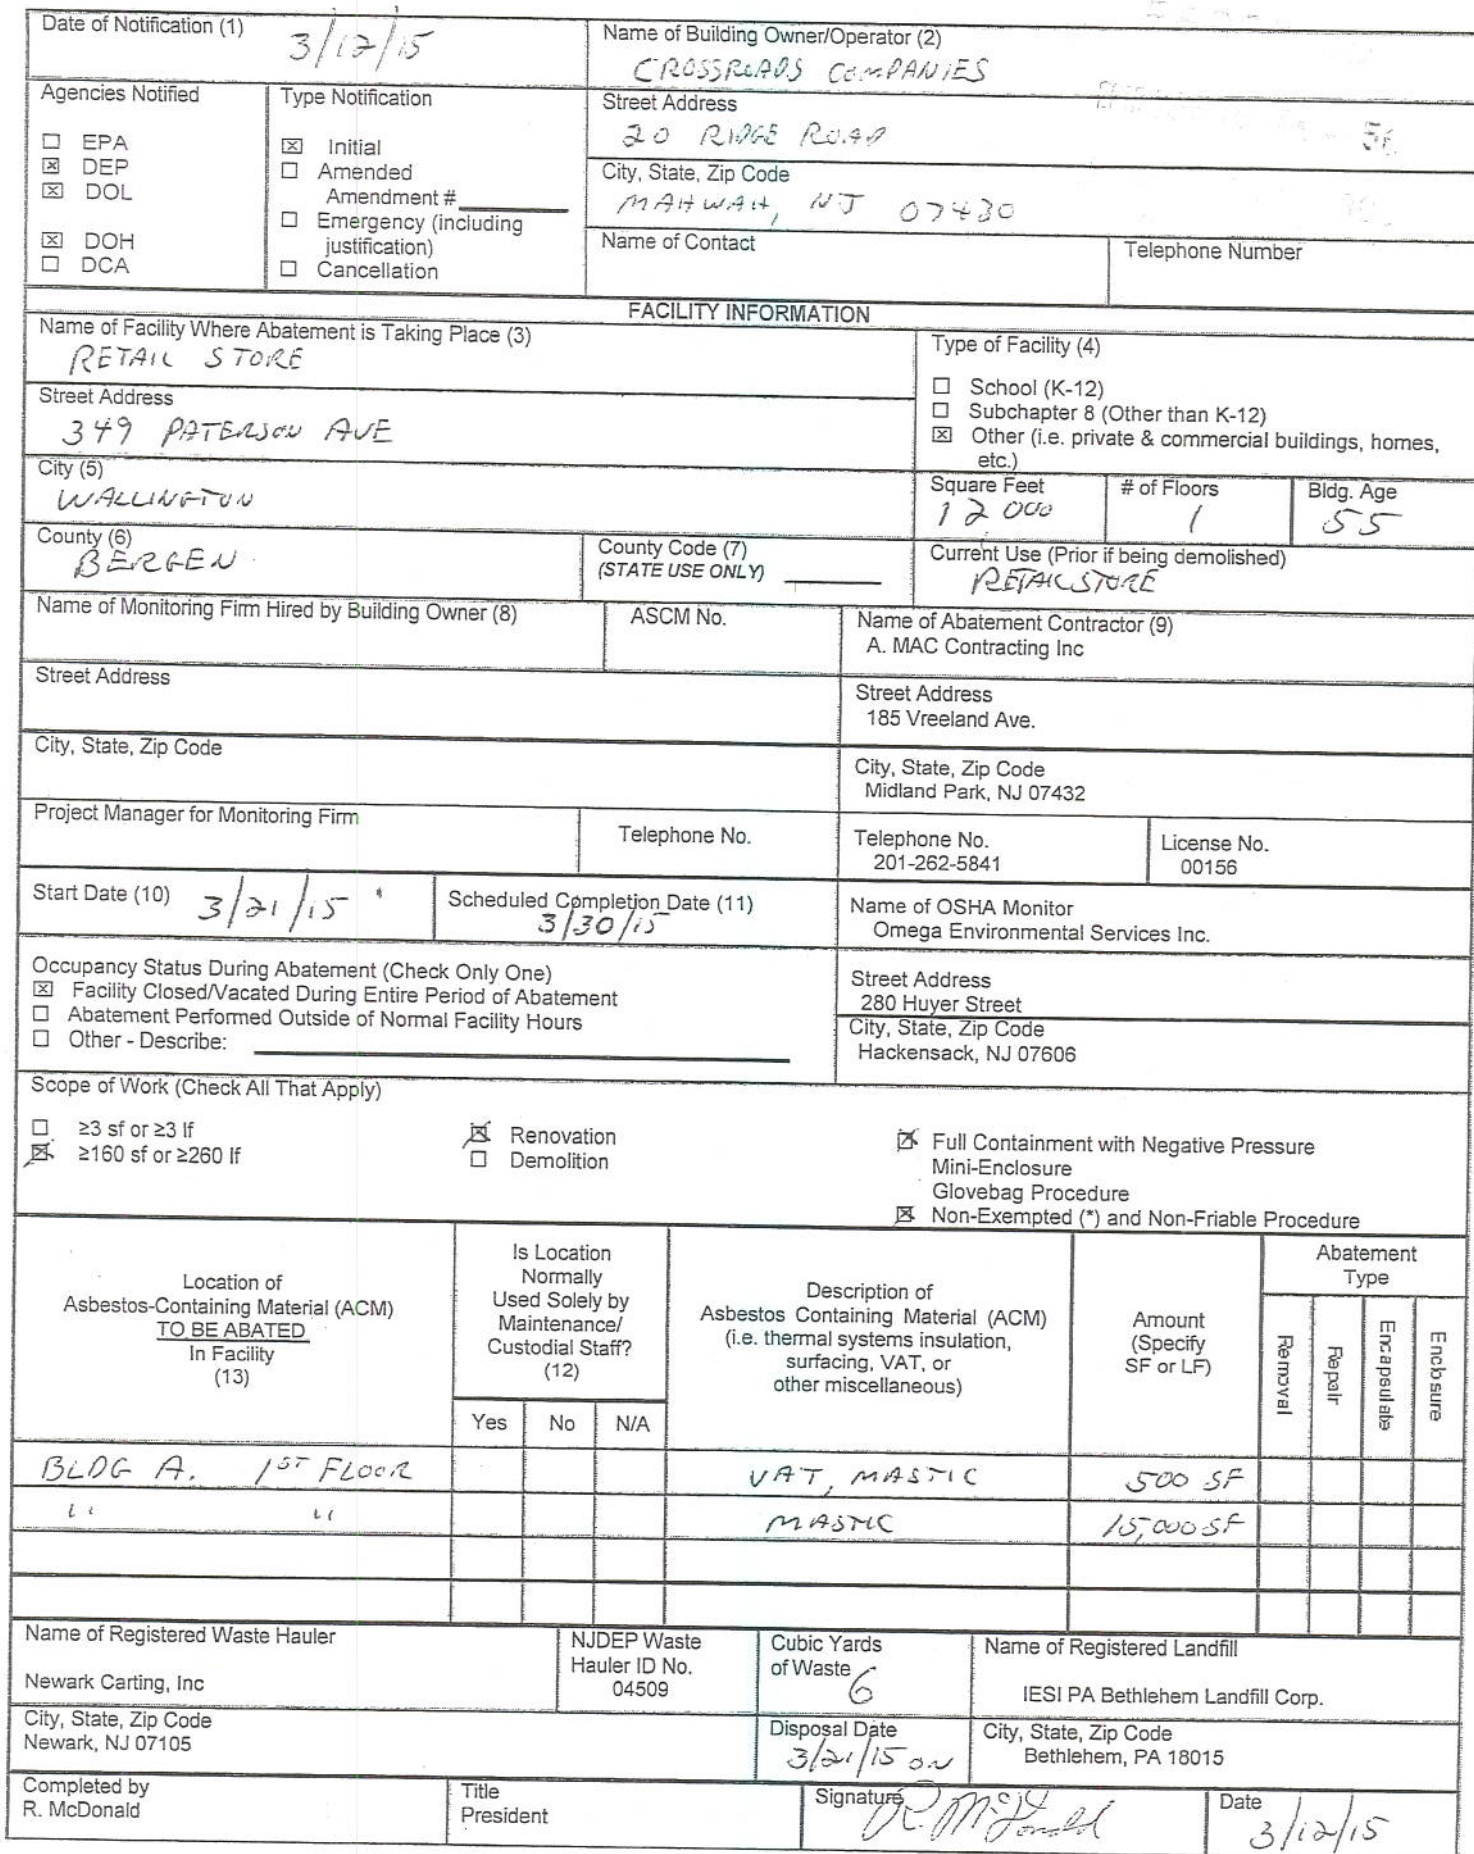 Date of Notification (1) 3/12/15
Name of Building Owner/Operator (2)
CROSSROADS COMPANIES
Agencies Notified
☐ EPA
☒ DEP
☒ DOL
☒ DOH
☐ DCA
Type Notification
☒ Initial
☐ Amended
Amendment #
☐ Emergency (including
justification)
☐ Cancellation
Street Address
20 RIDGE ROAD
City, State, Zip Code
MAHWAH, NJ 07430
Name of Contact
Telephone Number
FACILITY INFORMATION
Name of Facility Where Abatement is Taking Place (3)
RETAIL STORE
Street Address
349 PATERSON AVE
City (5)
WALLINGTON
County (6)
BERGEN
County Code (7)
(STATE USE ONLY)
Type of Facility (4)
☐ School (K-12)
☐ Subchapter 8 (Other than K-12)
☒ Other (i.e. private & commercial buildings, homes,
etc.)
Square Feet
12,000
# of Floors
1
Bldg. Age
55
Current Use (Prior if being demolished)
RETAIL STORE
Name of Monitoring Firm Hired by Building Owner (8)
ASCM No.
Name of Abatement Contractor (9)
A. MAC Contracting Inc
Street Address
Street Address
185 Vreeland Ave.
City, State, Zip Code
City, State, Zip Code
Midland Park, NJ 07432
Project Manager for Monitoring Firm
Telephone No.
Telephone No.
201-262-5841
License No.
00156
Start Date (10) 3/21/15 *
Scheduled Completion Date (11)
3/30/15
Name of OSHA Monitor
Omega Environmental Services Inc.
Occupancy Status During Abatement (Check Only One)
☒ Facility Closed/Vacated During Entire Period of Abatement
☐ Abatement Performed Outside of Normal Facility Hours
☐ Other - Describe:
Street Address
280 Huyer Street
City, State, Zip Code
Hackensack, NJ 07606
Scope of Work (Check All That Apply)
☐ ≥3 sf or ≥3 lf
☒ ≥160 sf or ≥260 lf
☒ Renovation
☐ Demolition
☒ Full Containment with Negative Pressure
Mini-Enclosure
Glovebag Procedure
☒ Non-Exempted (*) and Non-Friable Procedure
Location of
Asbestos-Containing Material (ACM)
TO BE ABATED
In Facility
(13)
Is Location
Normally
Used Solely by
Maintenance/
Custodial Staff?
(12)
Yes No N/A
Description of
Asbestos Containing Material (ACM)
(i.e. thermal systems insulation,
surfacing, VAT, or
other miscellaneous)
Amount
(Specify
SF or LF)
Abatement
Type
Removal
Repair
Encapsulate
Enclosure
BLDG A. 1ST FLOOR VAT, MASTIC 500 SF
" " MASTIC 15,000 SF
Name of Registered Waste Hauler
Newark Carting, Inc
NJDEP Waste
Hauler ID No.
04509
Cubic Yards
of Waste 6
Name of Registered Landfill
IESI PA Bethlehem Landfill Corp.
City, State, Zip Code
Newark, NJ 07105
Disposal Date
3/21/15 ON
City, State, Zip Code
Bethlehem, PA 18015
Completed by
R. McDonald
Title
President
Signature R. McDonald
Date
3/12/15